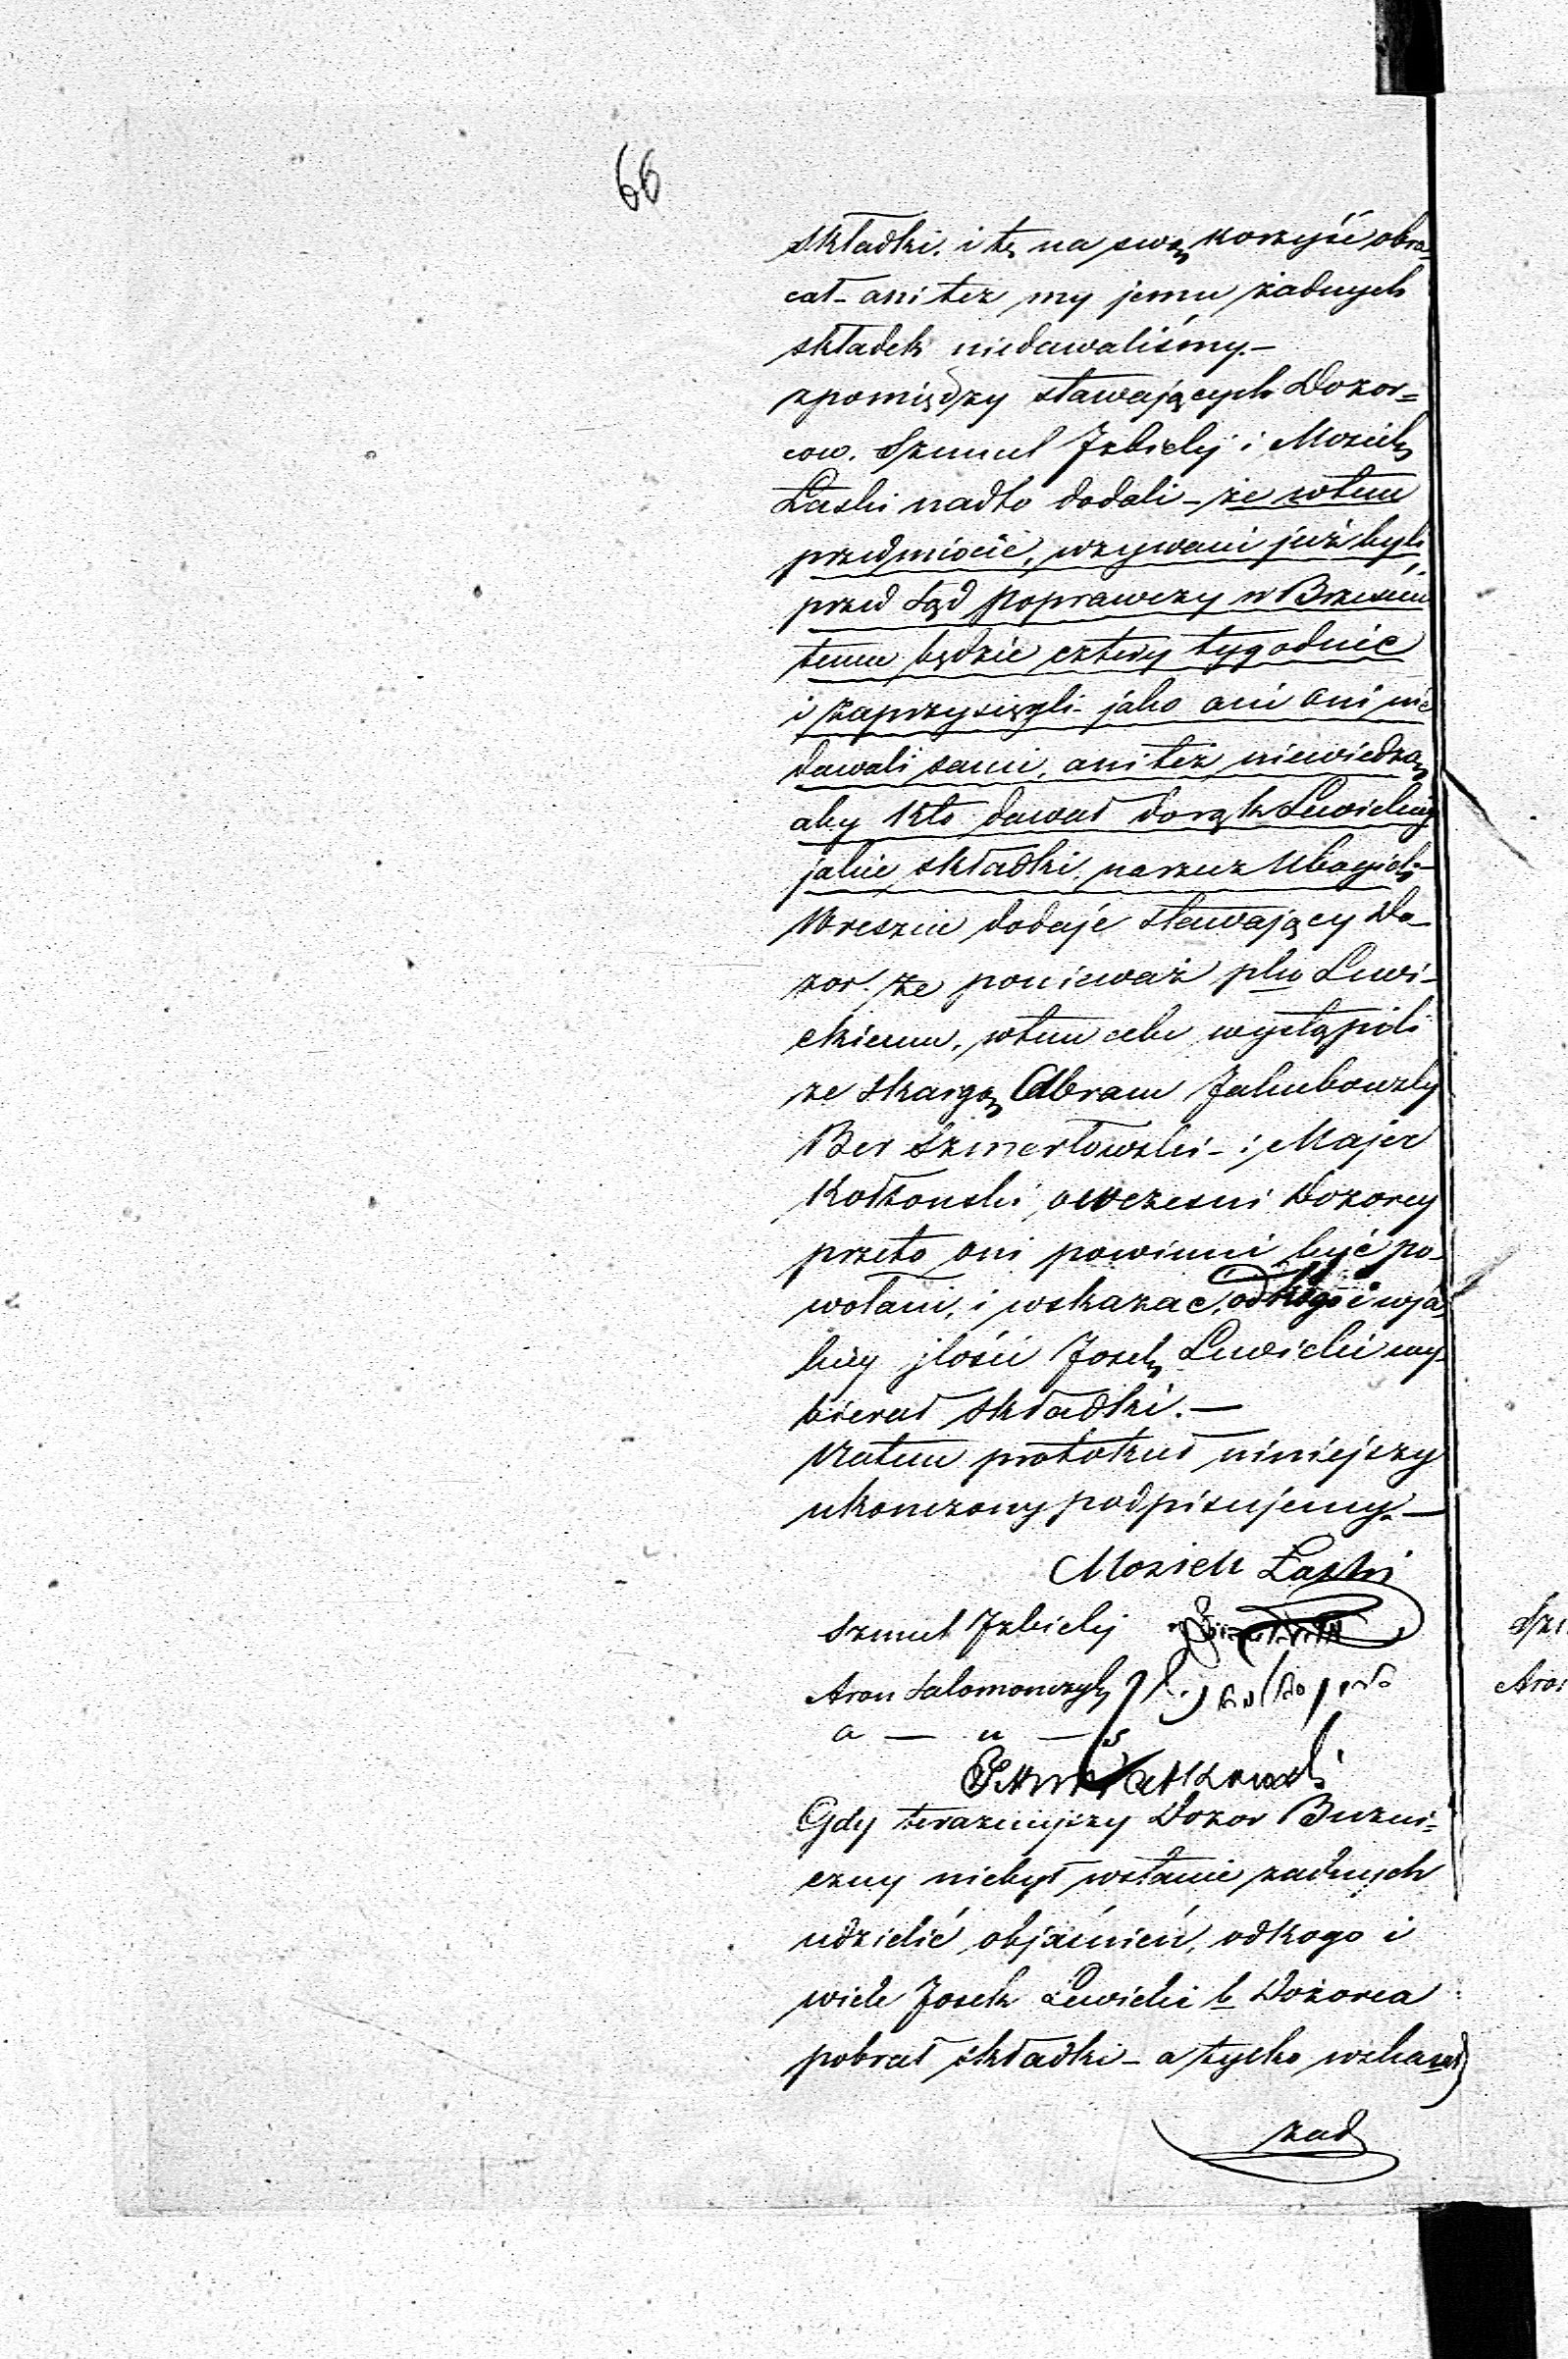 66
składki. i tę na swą korzyść obra-
cał - ani tez my jemu żadnych
składek niedawaliśmy. -
zpomiędzy stawających Dozor=
cow. Szmul Izbicky i Mosiek
Łaski nadto dodali - że wtem
przedmiocie, wzywani już byli
przed Sąd poprawczy w Brzesciu
temu będzie cztery tygodnie
i zaprzysięgli - jako ani oni nie
dawali sami, ani też niewiedzą
aby kto dawał do rąk Lewickiego
jakie składki, na rzecz Ubogich -
Wreszcie dodaje stawający Do-
zor. że ponieważ pko Lewi-
ckiemu, wtem celu wystąpili
ze skargą Abram Jakubowski
Ber Szmerłowski - i Majer
Kołtonski owczesni Dozorcy
przeto oni powinni być po-
wołani, i wskazac, od kogo i wja-
kiey jlości Josek Lewicki wy-
bierał składki. -
Natem protokuł niniejszy
ukonczony podpisujemy. -
Mosiek Łaski
Szmul Izbicky
Aron Salomonczyk
a — u —
Gdy terazniejszy Dozor Buzni=
czny niebył wstanie zadnych
udzielić objaśnień, odkogo i
wiele Josek Lewicki b Dozorca
pobrał składki - a tylko wskazał
zad
Szm
Aron